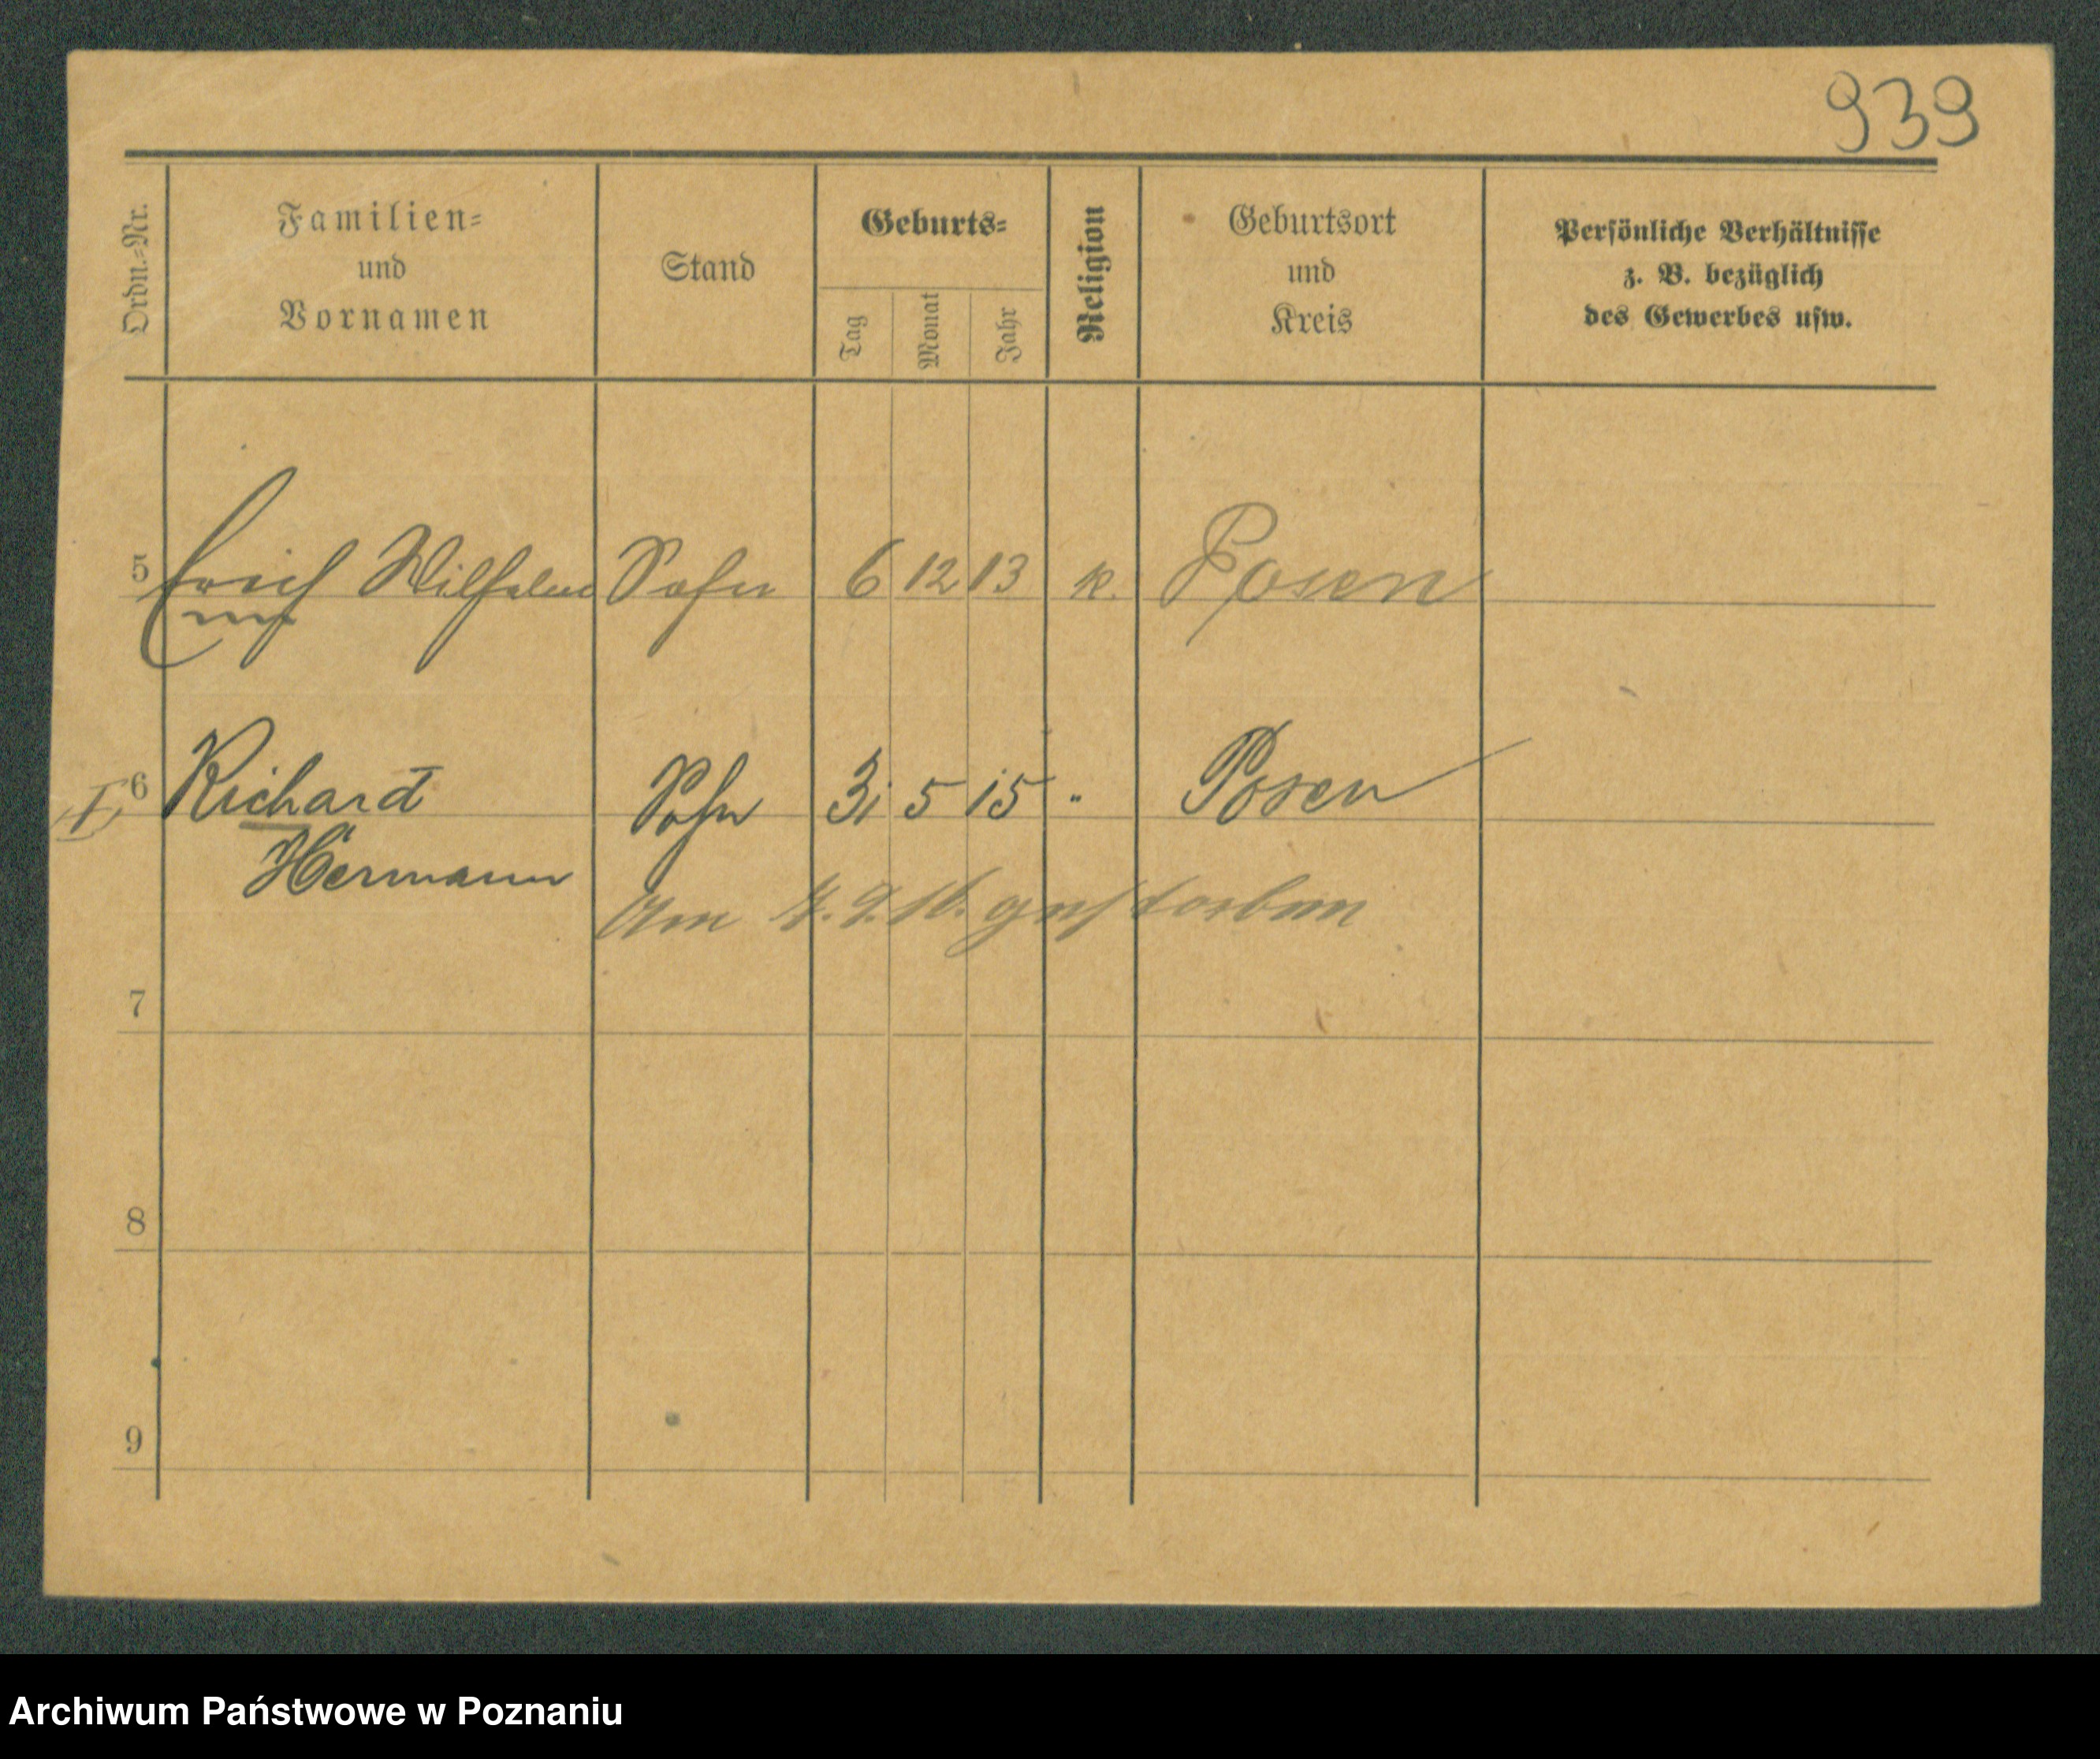 939
Ordn.=Nr.
Familien=
und
Vornamen
Stand
Geburts=
Tag
Monat
Jahr
Religion
Geburtsort
und
Kreis
Persönliche Verhältnisse
z. B. bezüglich
des Gewerbes usw.
5 Erich Wilhelm Sohn 6 12 13 k. Posen
6 Richard Sohn 31 5 15 " Posen
Hermann
Am 9. gestorben
7
8
9
Archiwum Państwowe w Poznaniu